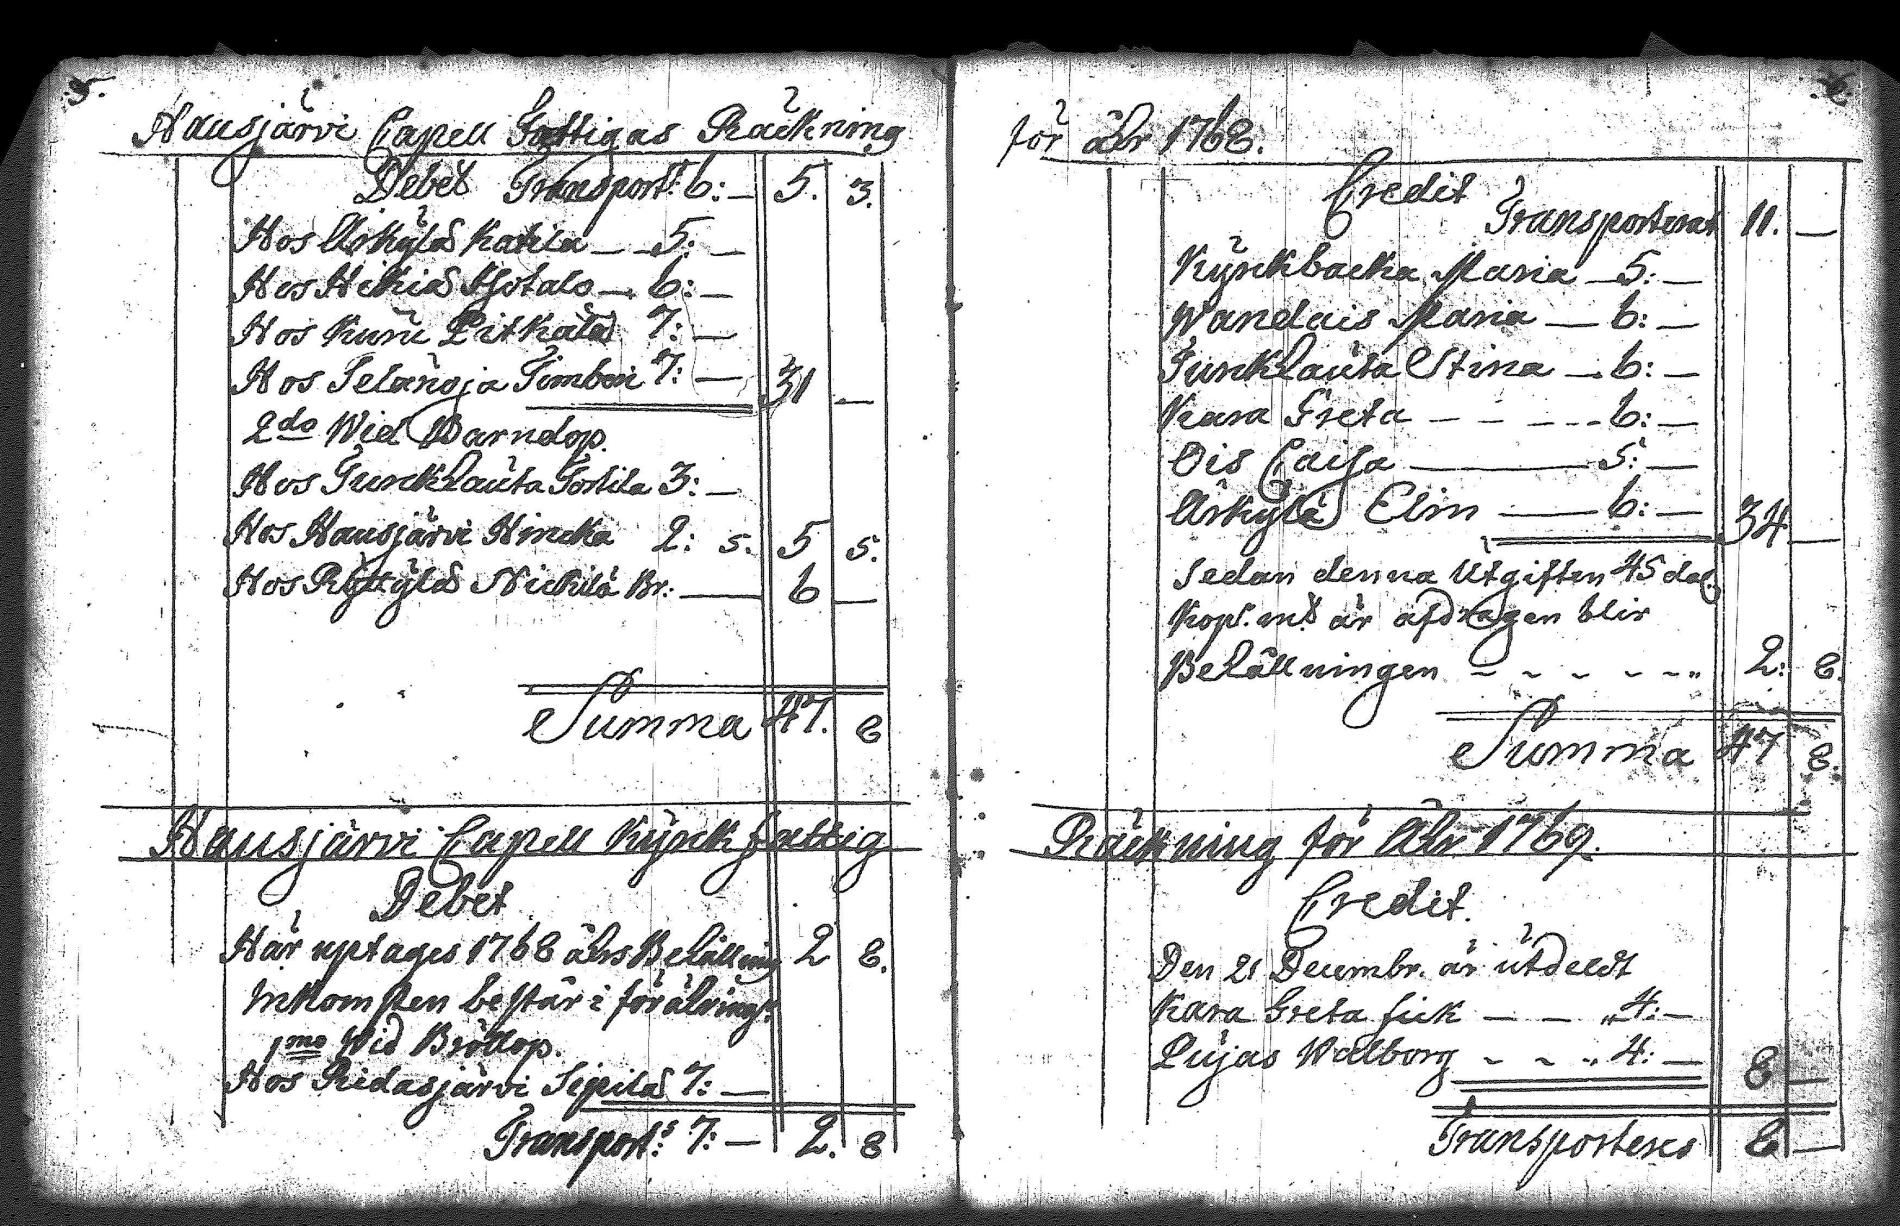 5.
Hausjärvi Capell Fattigas Räckning
Debet Transport: 6:— 5. 3.
Hos Årkylä Katila — 5: —
Hos Hikiä — 6: —
Hos Kuru Pitkälä 7: —
Hos Selänoja Timberi 7: — 31 —
2do Wid Barndop.
Hos Turckhauta Tortila 3: —
Hos Hausjärvi Hincka 2: 5. 5 5.
Hos Ryttylä Nickilä Br: — 6 —
Summa 47. 8
Hausjärvi Capell Kyrck fattig
Debet
Här uptages 1768 åhrs Behållning 2 8.
Inkomsten består i förähring:
1mo Wid Bröllop.
Hos Ridasjärvi Sipilä 7: —
Transport: 7: — 2. 8
6.
för åhr 1768.
Credit
Transporterat 11. —
Kyrckbacka Maria — 5: —
Wandais Maria — 6: —
Turckhauta Stina — 6: —
Kara Greta - - - - - 6: —
Ois Caisa — 5: —
Årkylä Elin — 6: — 34 —
Sedan denna Utgiften 45 dal.
Kop. mt är afdragen blir
Behållningen - - - - - - 2: 8.
Summa 47 8.
Räckning för Åhr 1769.
Credit.
Den 21 Decembr. är utdeldt
Kara Greta fick — — „ 4: —
Pujas Walborg - - - 4: — 8 —
Transporteres 8 —